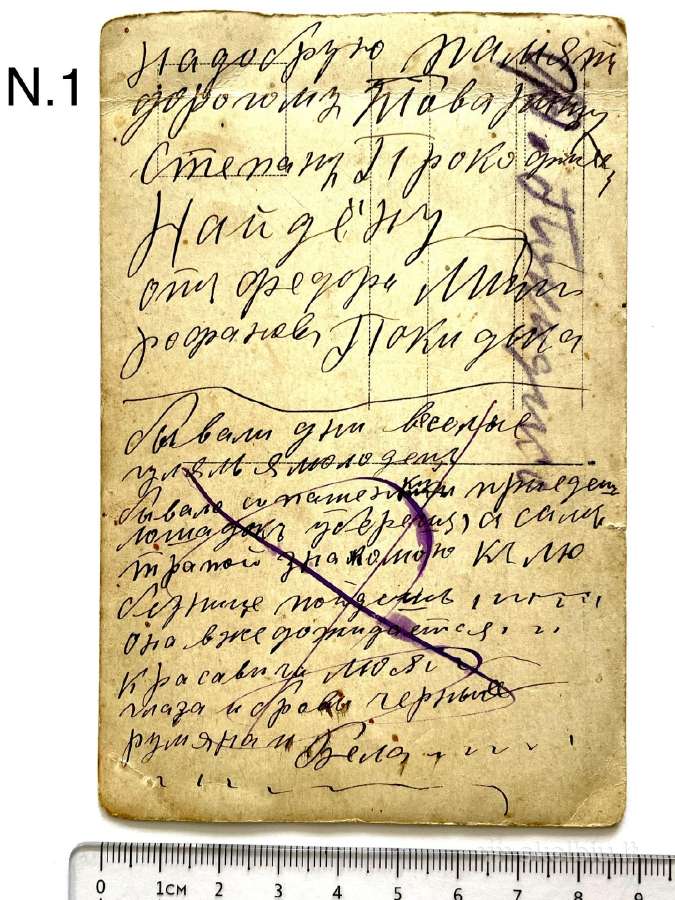 N.1
На добрую памят
дорогому Товарищу
Степану Прокофие
Найдёну
от федора Мит
рофанова Покидька
бывали дни веселые
гулял я молодец
бывало с пашеньки приедеш
лошадок уберешь, а самъ
тропой знакомою къ лю
безнице пойдешь
она вже дожидается
красавица моя
глаза и брови черные
румяна и бела
0 1CM 2 3 4 5 6 7 8 9